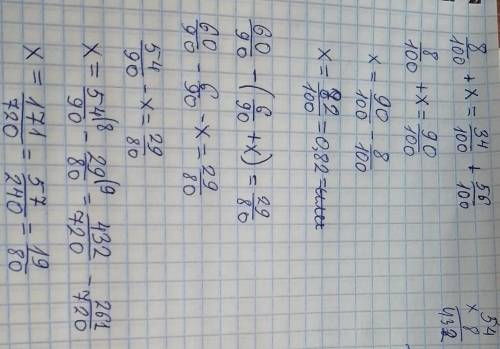 8/100 + x = 34/100 + 56/100
8/100 + x = 90/100
x = 90/100 - 8/100
x = 82/100 = 0,82
60/90 - (6/90 + x) = 29/80
60/90 - 6/90 - x = 29/80
54/90 - x = 29/80
x = 54/90 (8 - 29/80 (9 = 432/720 - 261/720
x = 171/720 = 57/240 = 19/80
54
x 8
432